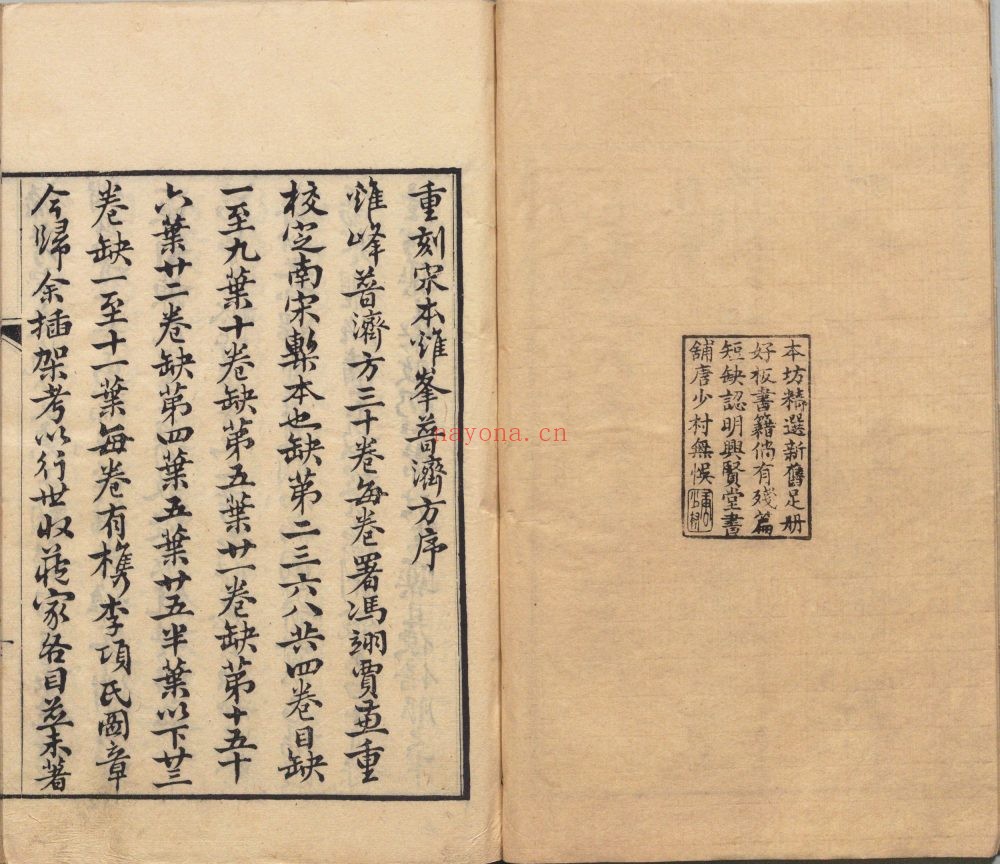 本坊精選新舊足册
好板書籍倘有殘篇
短缺認明興賢堂書
舖唐少村無悞
重刻宋本雞峯普濟方序
雞峰普濟方三十卷每卷署馮翊賈兼重
校定南宋槧本也缺第二三六八共四卷目缺
一至九葉十卷缺第五葉廿一卷缺第十五十
六葉廿二卷缺第四葉五葉廿五半葉以下廿三
卷缺一至十一葉每卷有檇李項氏圖章
今歸余插架考以行世收藏家各目並未著
nayona.cn